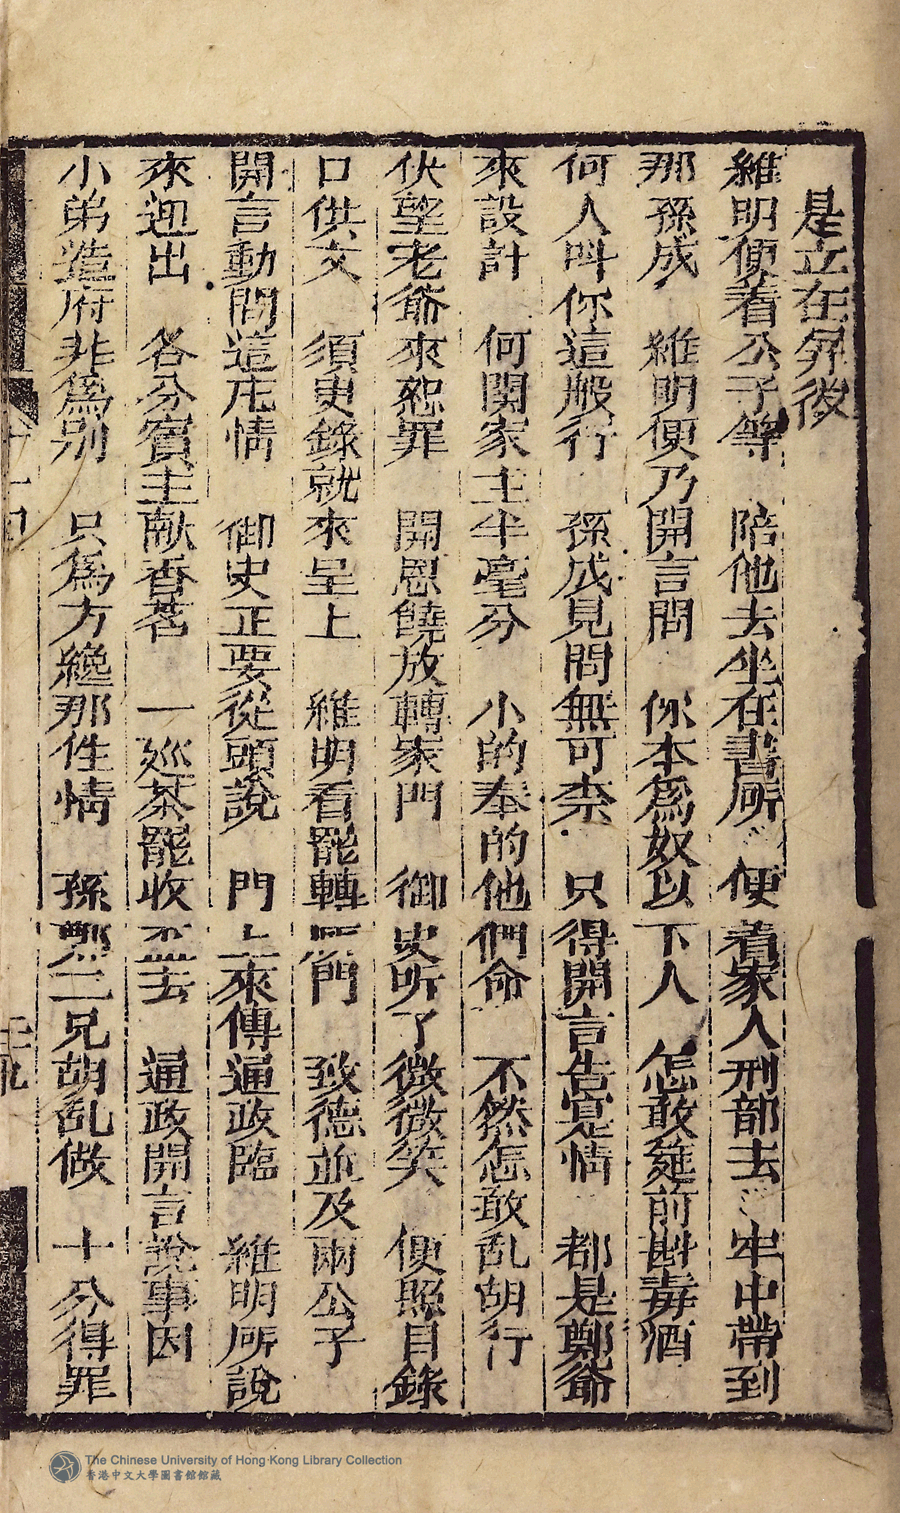 是立在屏後
維明便着公子等　陪他去坐在書房　便着家人刑部去　牢中帶到
那孫成　維明便乃開言問　你本為奴以下人　怎敢筵前斟毒酒
何人呌你這般行　孫成見問無可柰　只得開言告寔情　都是鄭爺
來設計　何関家主半毫分　小的奉的他們命　不然怎敢乱胡行
伏望老爺來恕罪　開恩饒放轉家門　御史听了微微笑　便照目錄
口供文　須臾錄就來呈上　維明看罷轉㕔門　致德並及兩公子
開言動間這庄情　御史正要從頭說　門上來傳通政臨　維明所說
來迎出　各分賓主献香茗　一廵茶罷收盃去　通政開言說事因
小弟造府非為別　只為方纔那件情　孫鄭二兄胡乱做　十分得罪
十四
二九
The Chinese University of Hong Kong Library Collection
香港中文大學圖書館館藏